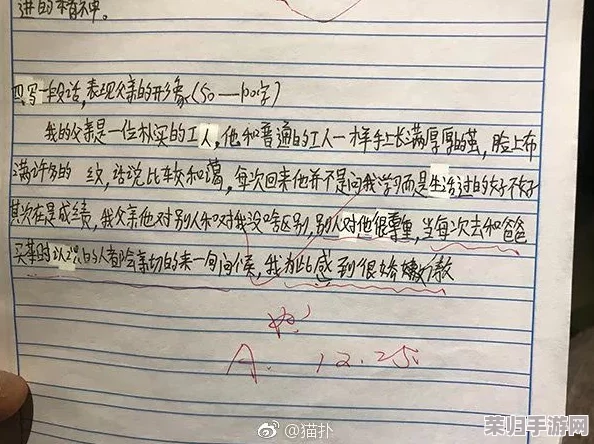 进的精神。
四.写一段话,表现父亲的形象(50——100字)
我的父亲是一位朴实的工人,他和普通的工人一样手上长满厚厚的茧,脸上布
满许多的 纹,话说比较和蔼,每次回来他并不是问我学习而是生活过的好不好
其次在是成绩,我父亲他对别人和对我没啥区别,别人对他很尊重,当每次去和爸爸
买菜时 的人都会亲切的来一句问候,我为此感到很 傲
A. 12.25.
@猫扑
荣归手游网